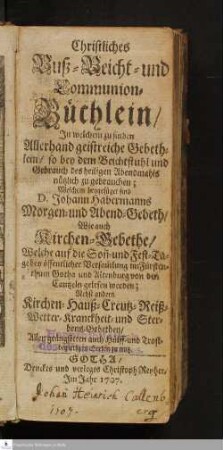 Christliches
Buß-Beicht-und
Communion-
Büchlein/
In welchem zu finden
Allerhand geistreiche Gebeth-
lein/ so bey dem Beichtstuhl und
Gebrauch des heiligen Abendmahls
nützlich zu gebrauchen;
Welchem beygefüget sind
D. Johann Habermanns
Morgen- und Abend-Gebeth/
Wie auch
Kirchen-Gebethe/
Welche auf die Sonn- und Fest-Ta-
ge bey öffentlicher Versamlung im Fürsten-
thum Gotha und Altenburg von den
Cantzeln gelesen werden;
Nebst andern
Kirchen-Hauß-Creutz-Reiß-
Wetter-Kranckheit-und Ster-
bens-Gebethen/
Allen geängsteten auch Hülff- und Trost-
Seelen zu nutz.
GOTHA/
Druckts und verlegts Christoph Reyher,
Im Jahr 1707.
Johan Heinrich
1709.